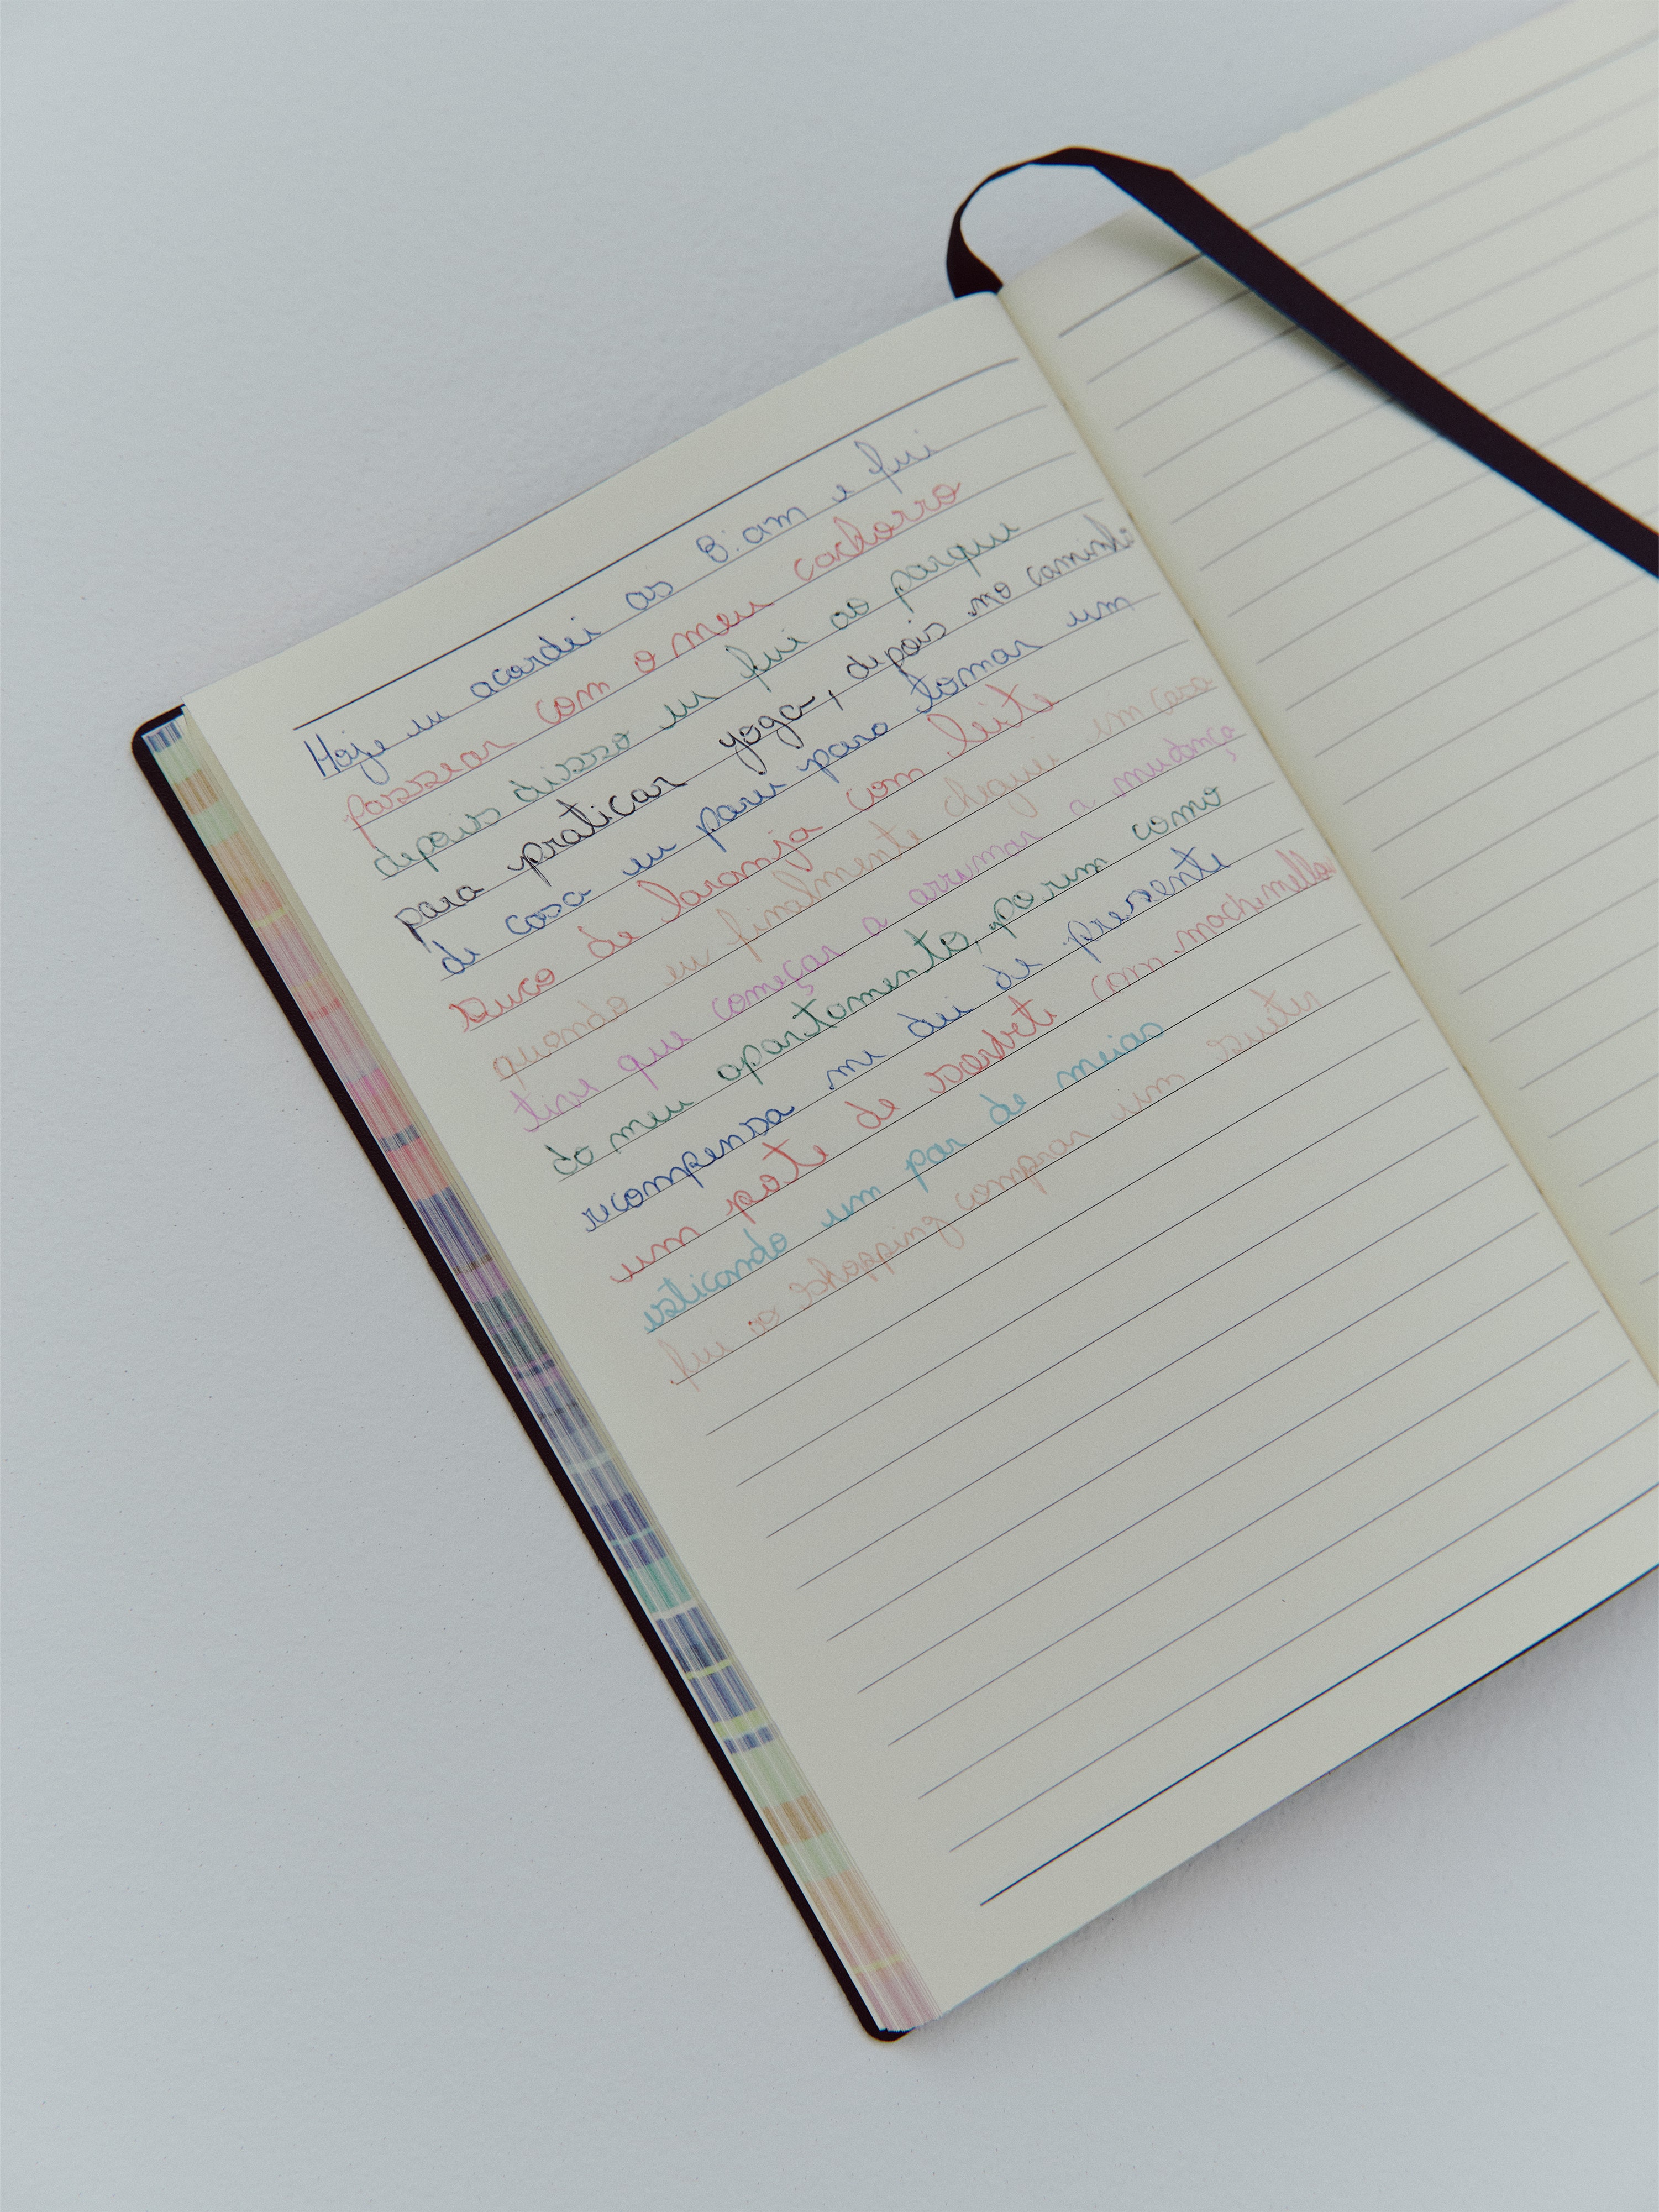 Hoje eu acordei as 8:am e fui
passear com o meu cachorro
depois disso eu fui ao parque
para praticar yoga, depois no caminho
de casa eu parei para tomar um
suco de laranja com leite
quando eu finalmente cheguei em casa
tive que começar a arrumar a mudança
do meu apartamento, porem como
recompensa me dei de presente
um pote de sorvete com
esticando um par de meias
fui ao shopping comprar um